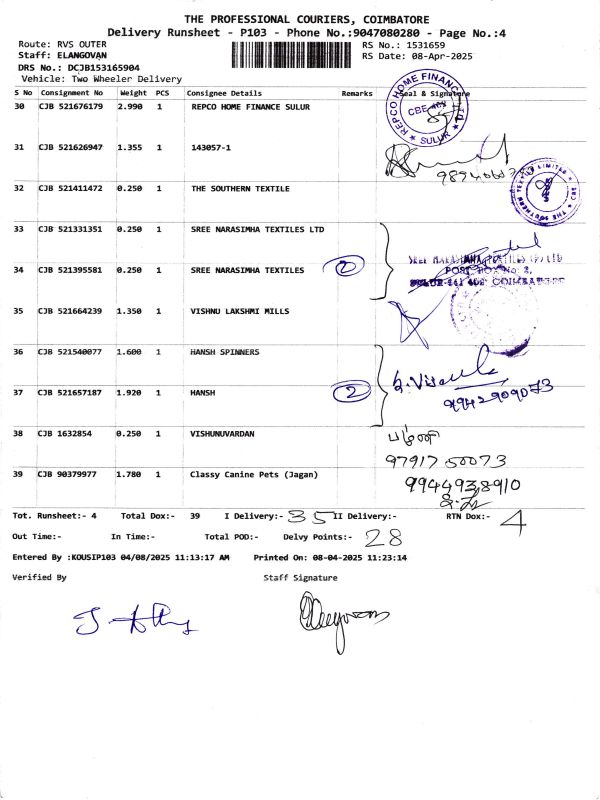 THE PROFESSIONAL COURIERS, COIMBATORE
Delivery Runsheet - P103 - Phone No.:9047080280 - Page No.:4
Route: RVS OUTER RS No.: 1531659
Staff: ELANGOVAN RS Date: 08-Apr-2025
DRS No.: DCJB153165904
Vehicle: Two Wheeler Delivery
S No Consignment No Weight PCS Consignee Details Remarks Seal & Signature
30 CJB 521676179 2.990 1 REPCO HOME FINANCE SULUR
REPCO HOME FINANCE LTD
SULUR
31 CJB 521626947 1.355 1 143057-1
32 CJB 521411472 0.250 1 THE SOUTHERN TEXTILE
33 CJB 521331351 0.250 1 SREE NARASIMHA TEXTILES LTD
34 CJB 521395581 0.250 1 SREE NARASIMHA TEXTILES 2
SREE NARASIMHA TEXTILES (P) LTD
POST BOX No: 2,
SULUR-641 402 COIMBATORE
35 CJB 521664239 1.350 1 VISHNU LAKSHMI MILLS
36 CJB 521540077 1.600 1 HANSH SPINNERS
37 CJB 521657187 1.920 1 HANSH 2
9942909073
38 CJB 1632854 0.250 1 VISHUNUVARDAN
பழனி
97917 50073
39 CJB 90379977 1.780 1 Classy Canine Pets (Jagan) 9944938910
Tot. Runsheet:- 4 Total Dox:- 39 I Delivery:- 35 II Delivery:- RTN Dox:- 4
Out Time:- In Time:- Total POD:- Delvy Points:- 28
Entered By :KOUSIP103 04/08/2025 11:13:17 AM Printed On: 08-04-2025 11:23:14
Verified By Staff Signature